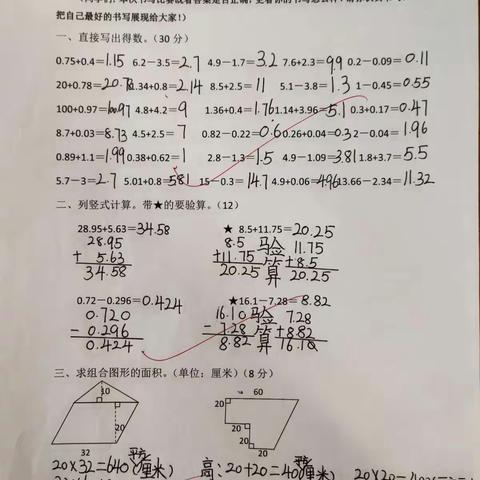 把自己最好的书写展现给大家!)
一、直接写出得数。(30 分)
0.75+0.4=1.15 6.2－3.5=2.7 4.9－1.7=3.2 7.6+2.3=9.9 0.2－0.09=0.11
20+0.78=20.78 1.34+0.8=2.14 8.5+2.5=11 5.1－3.8=1.3 1－0.45=0.55
100+0.97=100.97 4.8+4.2=9 1.36+0.4=1.76 1.14+3.96=5.1 0.3+0.17=0.47
8.7+0.03=8.73 4.5+2.5=7 0.82－0.22=0.6 0.26+0.04=0.3 2－0.04=1.96
0.89+1.1=1.99 0.38+0.62=1 2.8－1.3=1.5 4.9－1.09=3.81 1.8+3.7=5.5
5.7－3=2.7 5.01+0.8=5.81 15－0.3=14.7 4.9+0.06=4.96 13.66－2.34=11.32
二、列竖式计算。带★的要验算。(12)
28.95+5.63=34.58 ★ 8.5+11.75=20.25
28.95 8.5 验 11.75
+ 5.63 +11.75 算 +8.5
34.58 20.25 20.25
0.72－0.296=0.424 ★16.1－7.28=8.82
0.720 16.10 验 7.28
－0.296 －7.28 算 +8.82
0.424 8.82 16.10
三、求组合图形的面积。(单位：厘米)(8 分)
10 60
20
20 20
20
32 20
20×32=640(平方厘米) 高：20+20=40(平方厘米)